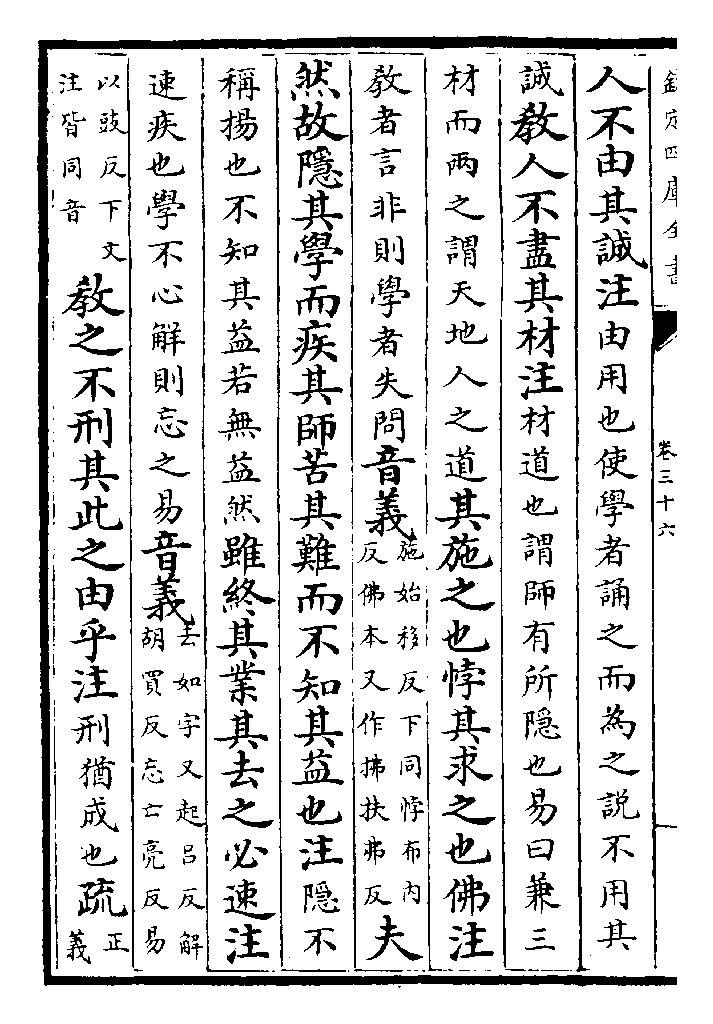 欽定四庫全書
卷三十六
人不由其誠注由用也使學者誦之而為之説不用其
誠教人不盡其材注材道也謂師有所隠也易曰兼三
材而兩之謂天地人之道其施之也悖其求之也佛注
教者言非則學者失問音義施始移反下同悖布内
反佛本又作拂扶弗反夫
然故隱其學而疾其師苦其難而不知其益也注隠不
稱揚也不知其益若無益然雖終其業其去之必速注
速疾也學不心解則忘之易音義去如字又起吕反解
胡買反忘亡亮反易
以豉反下文
注皆同音
教之不刑其此之由乎注刑猶成也疏正
義